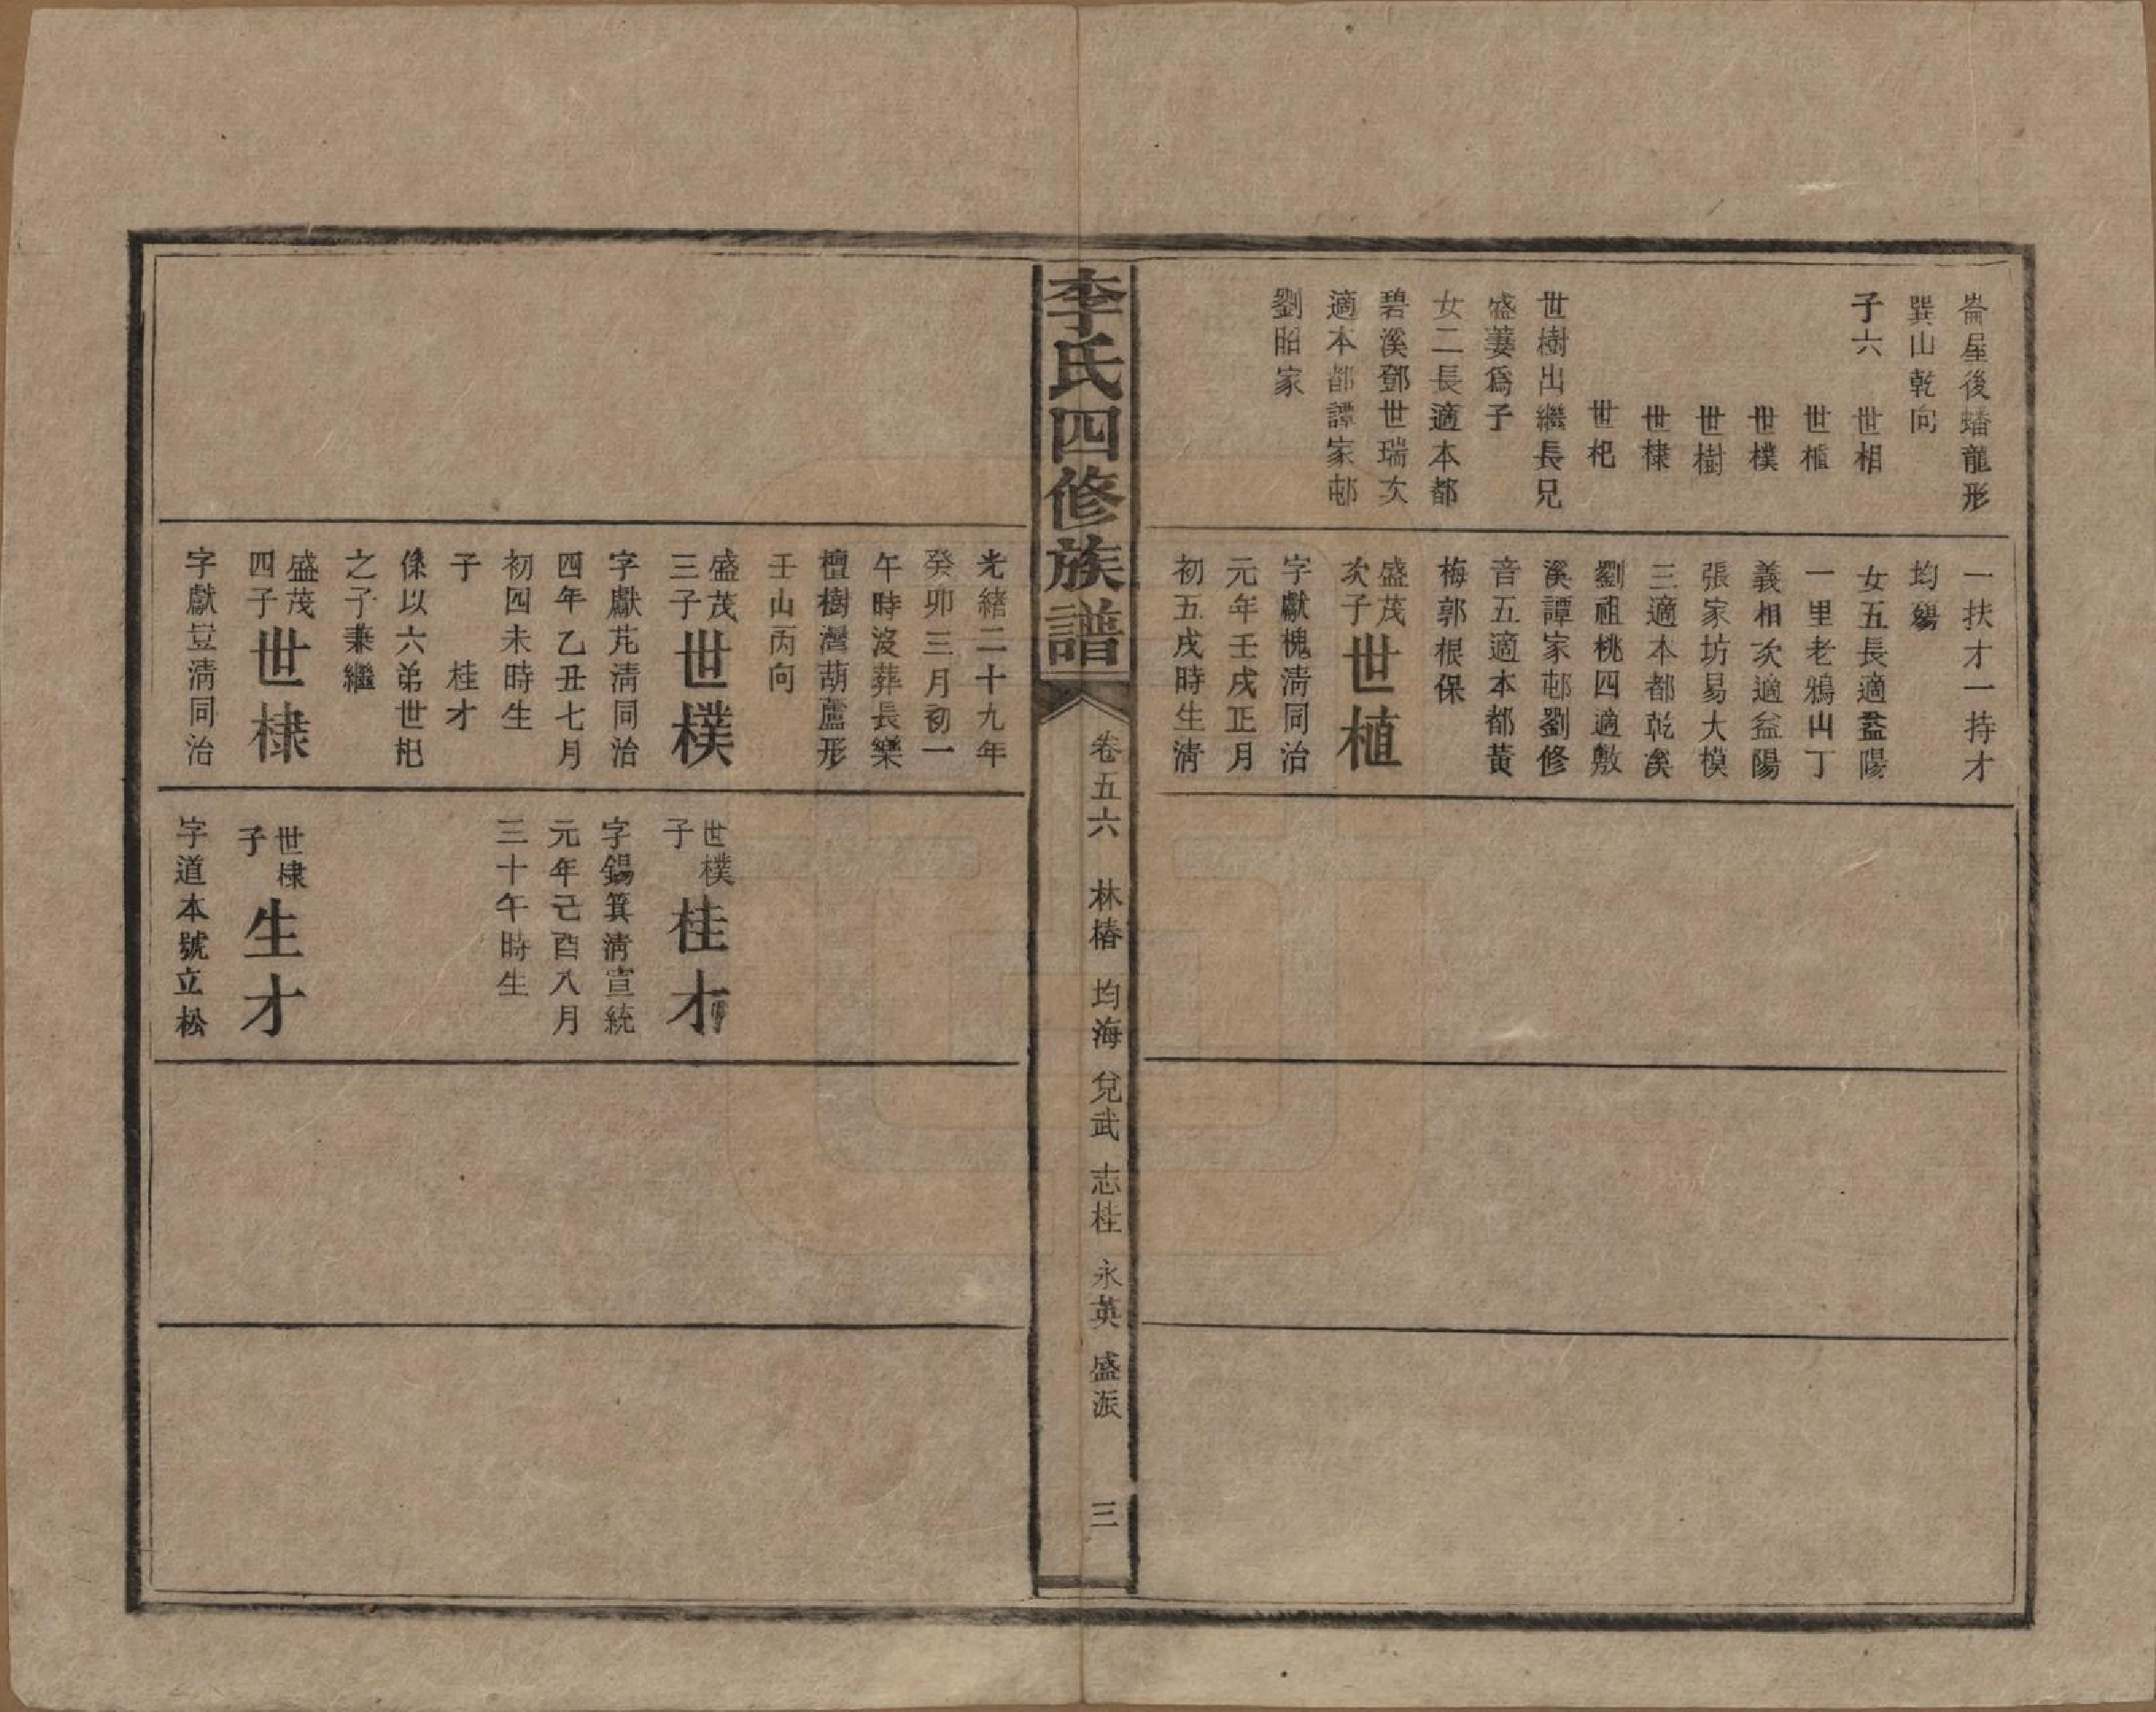 崙屋後蟠龍形
巽山乾向
子六 世相
世樞
世樸
世樹
世棣
世杷
世樹出繼長兄
盛萋爲子
女二長適本都
碧溪鄧世瑞次
適本都譚家邨
劉昭家
一扶才一持才
均殤
女五長適益陽
一里老鴉山丁
義相次適益陽
張家坊易大模
三適本都乾奚
劉祖桃四適敷
溪譚家邨劉修
音五適本都黃
梅郭根保
盛茂次子世植
字獻槐淸同治
元年壬戌正月
初五戌時生淸
李氏四修族譜
卷五六 林椿 均海 兌武 志桂 永英 盛派 三
光緒二十九年
癸卯三月初一
午時沒葬長樂
檀樹灣葫蘆形
壬山丙向
盛茂三子世樸
字獻芃淸同治
四年乙丑七月
初四未時生
子 桂才
係以六弟世杷
之子兼繼
盛茂四子世棣
字獻豈淸同治
世樸子桂才
字錫箕淸宣統
元年己酉八月
三十午時生
世棣子生才
字道本號立松